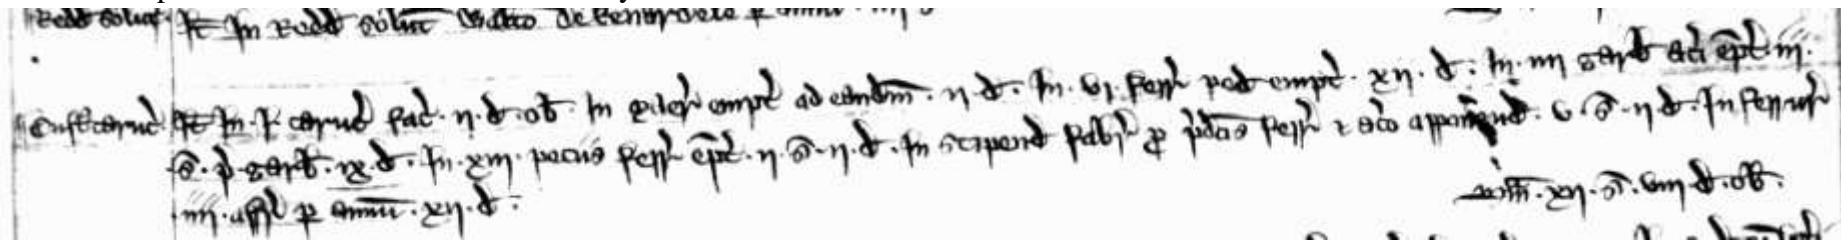 Redd solut' It In Redd solut de p annu iiij s
Cust caruc' It In .j. caruc' fac' .ij.d.ob. In empt' ad eandm .ij d. In .vj. ferr' ped empt' .xij.d. In .iiij garb aci ept' .iij.
.s. p garb .ix.d. In .xiij. pecijs ferr' ept' .ij.s.ij.d. In stipend fabri p p'dcis ferr' & aco apponend. v.s.ij d. In ferrur'
.iiij. affr' p annu .xij.d.
Sm. xij.s. viij.d.ob.